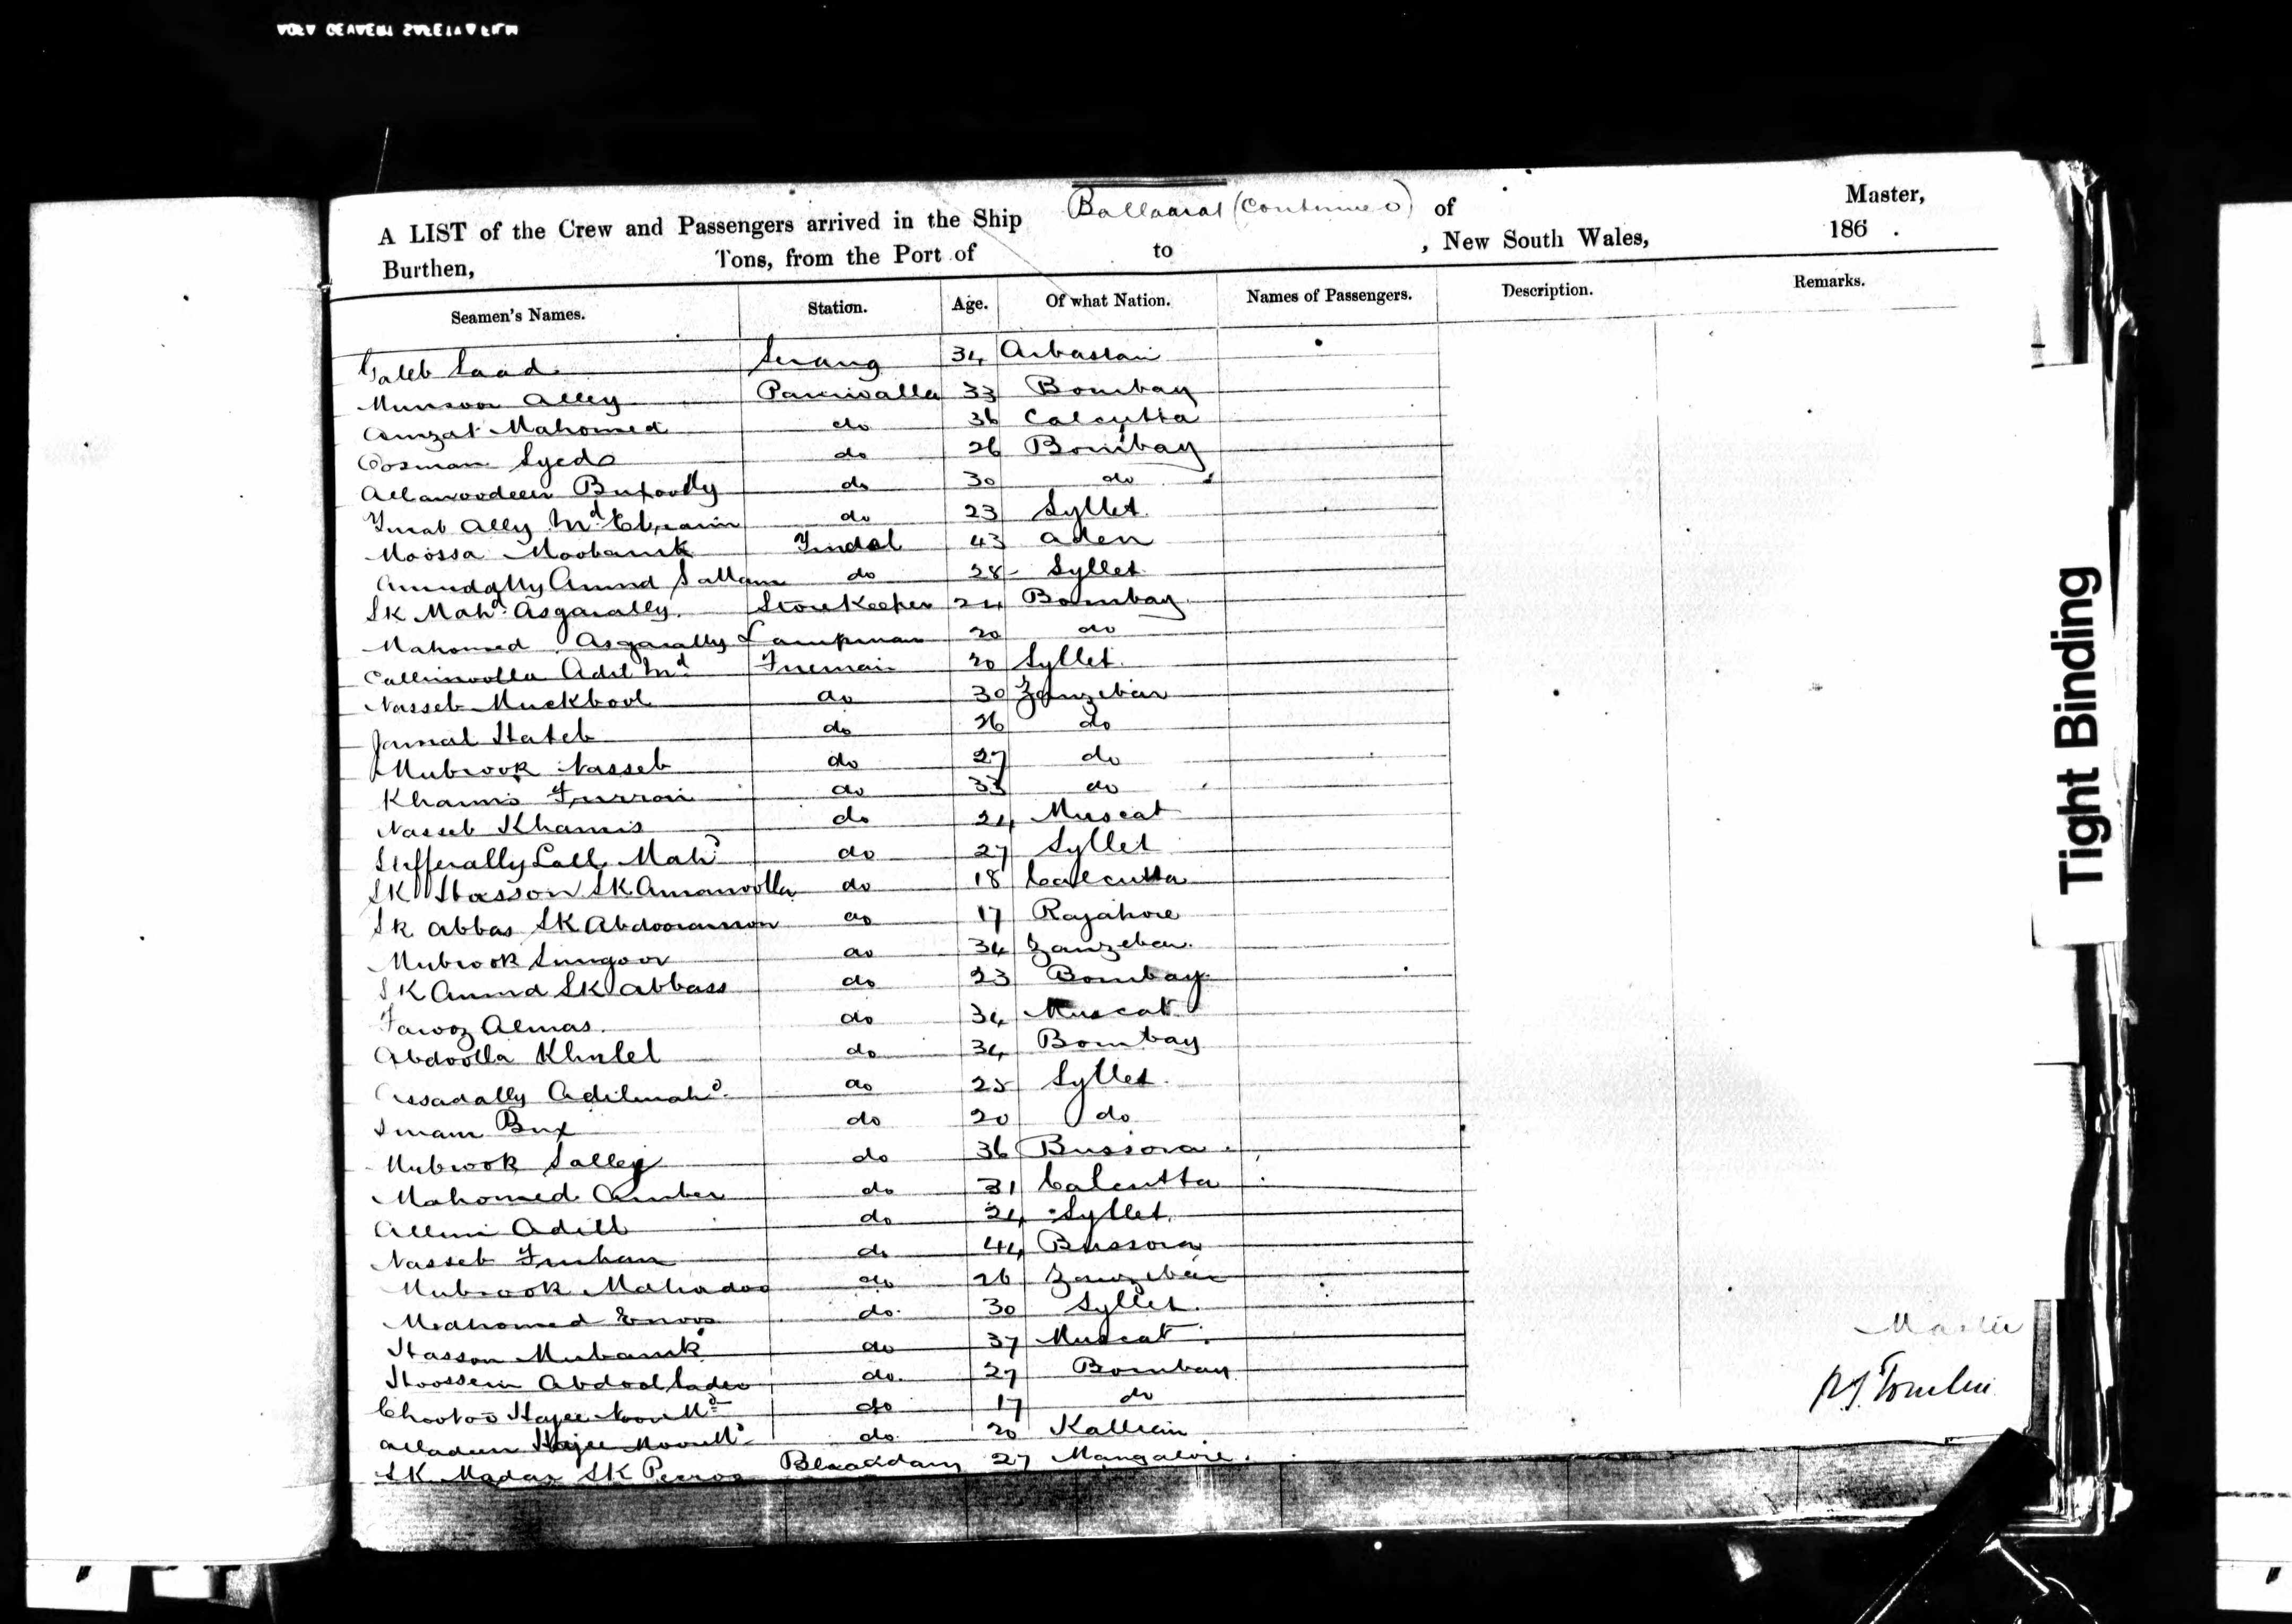 A LIST of the Crew and Passengers arrived in the Ship Ballaarat (Continued) of Master,
Burthen, Tons, from the Port of to , New South Wales, 186 .
Seamen's Names. Station. Age. Of what Nation. Names of Passengers. Description. Remarks.
Galeb Saad Serang 34 Arbastan
Munsoor Alley Panniwalla 33 Bombay
Amzat Mahomed do 36 Calcutta
Oosman Syed do 26 Bombay
Allanoodeen do 30 do
Ally Md. Ebraim do 23 Syllet
Moossa Moobaruk Tindal 43 Aden
do 28 Syllet
SK Mahd. Asgarally Storekeeper 24 Bombay
Mahomed Asgarally Lampman 20 do
Callimoolla Adil Md. Fireman 20 Syllet
Nasseb Muckbool do 30 Zanzebar
Jamal Hateb do 26 do
Mubrook Nasseb do 27 do
Khamis do 33 do
Nasseb Khamis do 24 Muscat
Sufferally Lall Mahd. do 27 Syllet
SK Hasson SK Amanoolla do 18 Calcutta
SK Abbas SK do 17
Mubrook Sungoor do 34 Zanzebar
SK Amud SK Abbass do 23 Bombay
Farooz Almas do 34 Muscat
Abdoolla Khalel do 34 Bombay
Assadally Adilmahd. do 25 Syllet
Imam Bux do 20 do
Mubrook Salley do 36 Bussora
Mahomed Amber do 31 Calcutta
Allim Adill do 24 Syllet
Nasseb Furhan do 44 Bussora
Mubrook do 26 Zanzebar
do 30 Syllet
Hasson Mubaruk do 37 Muscat
Hoossein Abdool do 27 Bombay
Chootoo Hajee Noor Md. do 17 do
Alladeen Hajee Noor Md. do 20 Kallian
SK SK 27 Mangalore
Master
Tomlin
Tight Binding